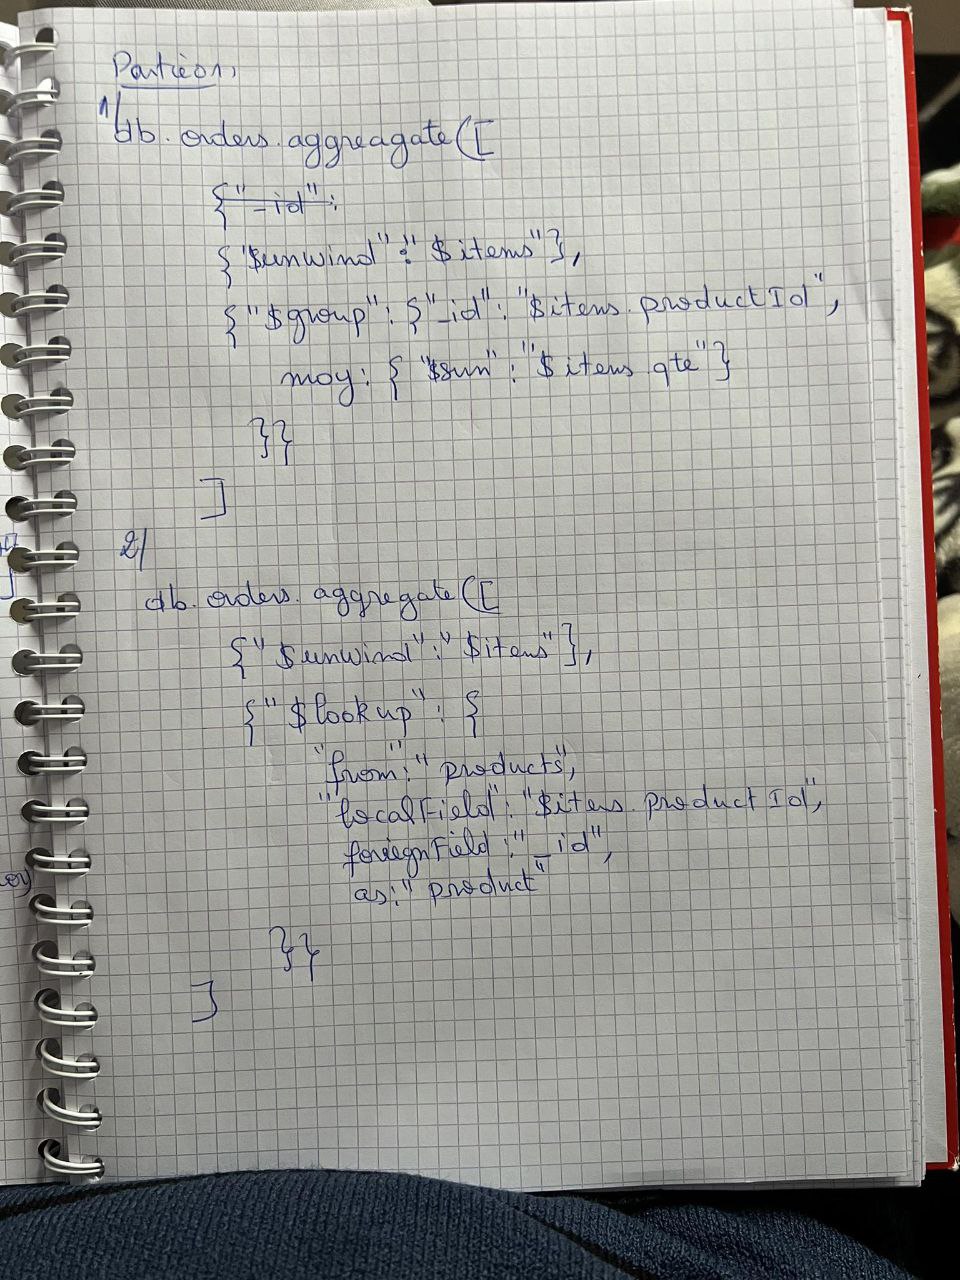 Partie 01,
1/
db.orders.aggreagate([
{"_id":
{"$unwind":"$items"},
{"$group": {"_id": "$items.productId",
moy: { "$sum": "$items.qte"}
}}
]
2/
db.orders.aggregate([
{"$unwind":"$items"},
{"$lookup": {
"from":"products",
"localField": "$items.productId",
foreignField:"_id",
as:"product"
}}
]